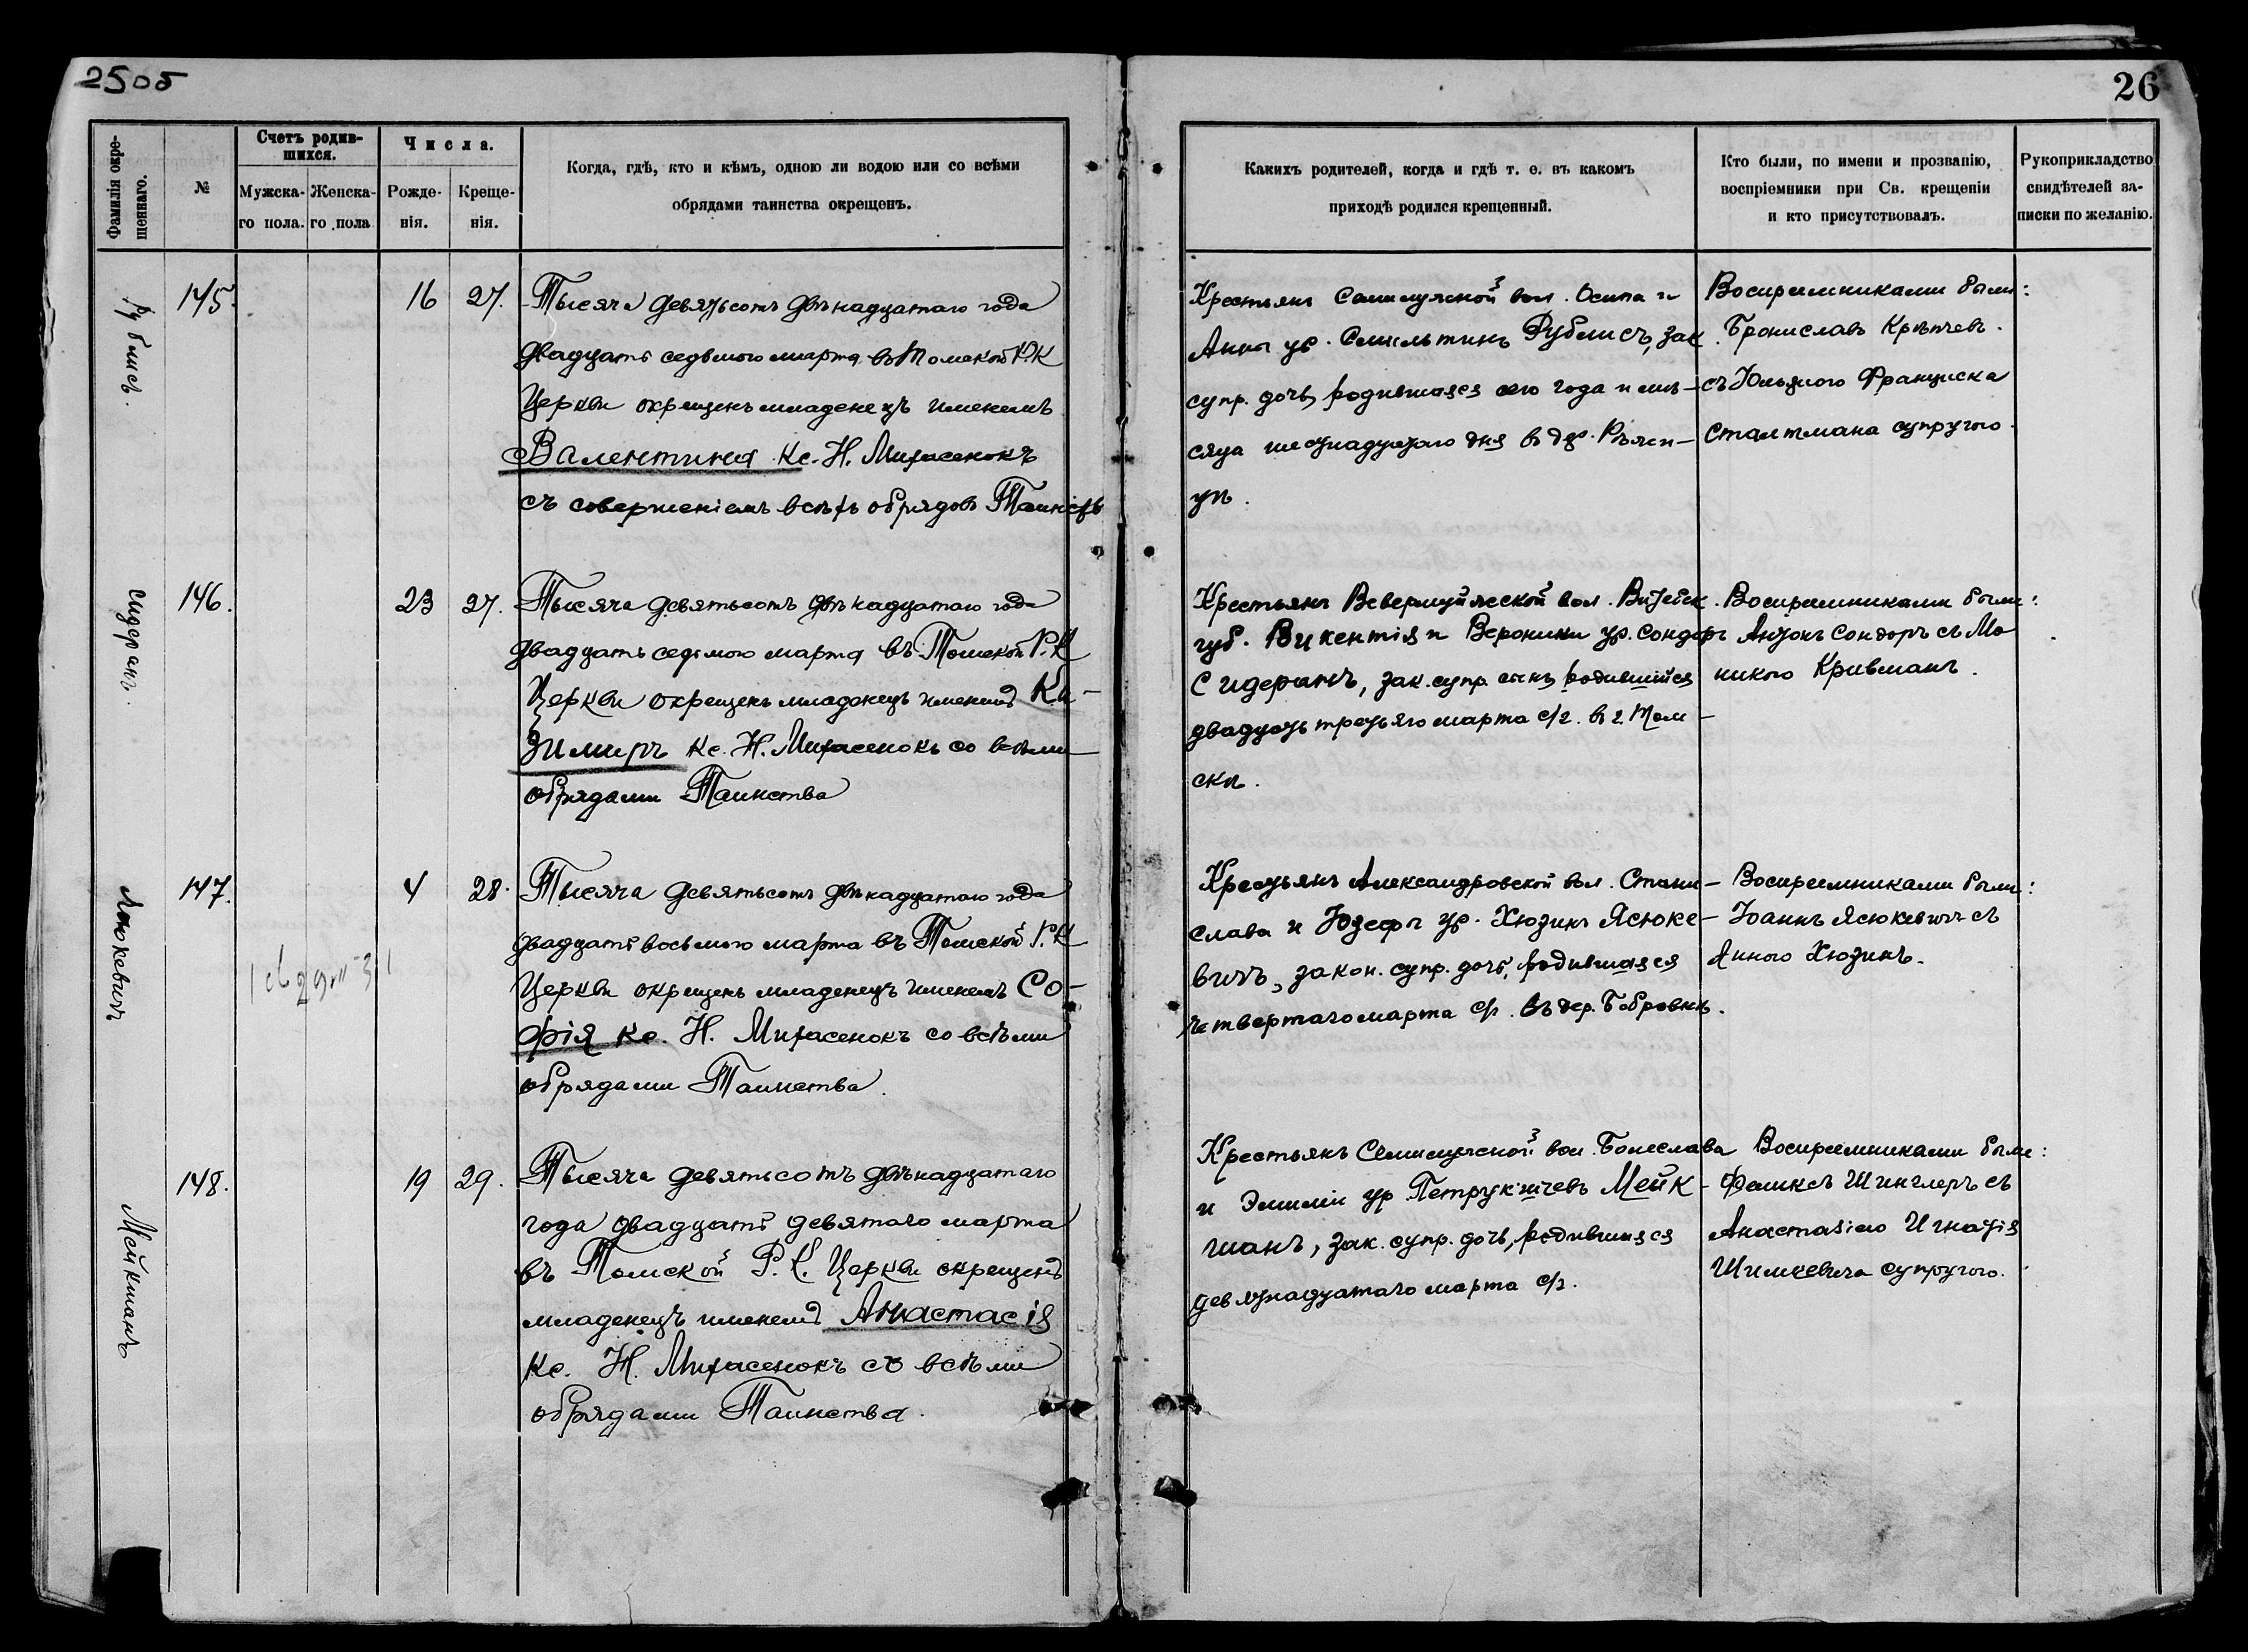 250б
26
Фамилія окре-
щеннаго.
№
Счетъ родив-
шихся.
Мужска-
го пола.
Женска-
го пола
Числа.
Рожде-
нія.
Креще-
нія.
Когда, гдѣ, кто и кѣмъ, одною ли водою или со всѣми
обрядами таинства окрещенъ.
Какихъ родителей, когда и гдѣ т. е. въ какомъ
приходѣ родился крещенный.
Кто были, по имени и прозванію,
воспріемники при Св. крещеніи
и кто присутствовалъ.
Рукоприкладство
свидѣтелей за-
писки по желанію.
Рублисъ.
145.
16
27.
Тысяча девятьсотъ двѣнадцатаго года
двадцать седьмого марта въ Томской Р.К
Церкви окрещенъ младенецъ именемъ
Валентина Кс. Н. Михасенокъ
съ совершеніемъ всѣхъ обрядовъ Таинствъ
Крестьянъ Семилужской вол. Осипа и
Анны ур. Смильтинъ Рублисъ, зак.
супр. дочь, родившаяся сего года и мѣ-
сяца шестнадцатаго дня въ дер.
Воспреемниками были:
Брониславъ Крѣпчевъ
съ Юльяною Франциска
Сталтмана супругою.
Сидеранъ.
146.
23
27.
Тысяча девятьсотъ двѣнадцатаго года
двадцать седьмого марта въ Томской Р.К
Церкви окрещенъ младенецъ именемъ Ка-
зимиръ Кс. Н. Михасенокъ со всѣми
обрядами Таинства
Крестьянъ вол. Витебск.
губ. Викентія и Вероники ур. Сондоръ
Сидеранъ, зак. супр. сынъ, родившійся
двадцать третьяго марта с/г. въ г. Том-
скѣ.
Воспреемниками были:
Антонъ Сондоръ съ Мо
никою Кривманъ.
Ясюкевичъ
147.
4
28.
Тысяча девятьсотъ двѣнадцатаго года
двадцать восьмого марта въ Томской Р.К
Церкви окрещенъ младенецъ именемъ Со-
фія Кс. Н. Михасенокъ со всѣми
обрядами Таинства.
Крестьянъ Александровской вол. Стани-
слава и Юзефы ур. Хюзинъ Ясюке-
вичъ, закон. супр. дочь, родившаяся
четвертаго марта с/г. въ дер. Бобровкѣ.
Воспреемниками были:
Іоаннъ Ясюкевичъ съ
Анною Хюзинъ.
Мейкшанъ
148.
19
29.
Тысяча девятьсотъ двѣнадцатаго
года двадцать девятаго марта
въ Томской Р.К. Церкви окрещенъ
младенецъ именемъ Анастасія
Кс. Н. Михасенокъ со всѣми
обрядами Таинства.
Крестьянъ Семилужской вол. Болеслава
и Эмиліи ур. Петрукъ Мейк-
шанъ, зак. супр. дочь, родившаяся
девятнадцатаго марта с/г.
Воспреемниками были:
Феликсъ Шинглеръ съ
Анастасіею Игнатія
Шимкевича супругою.